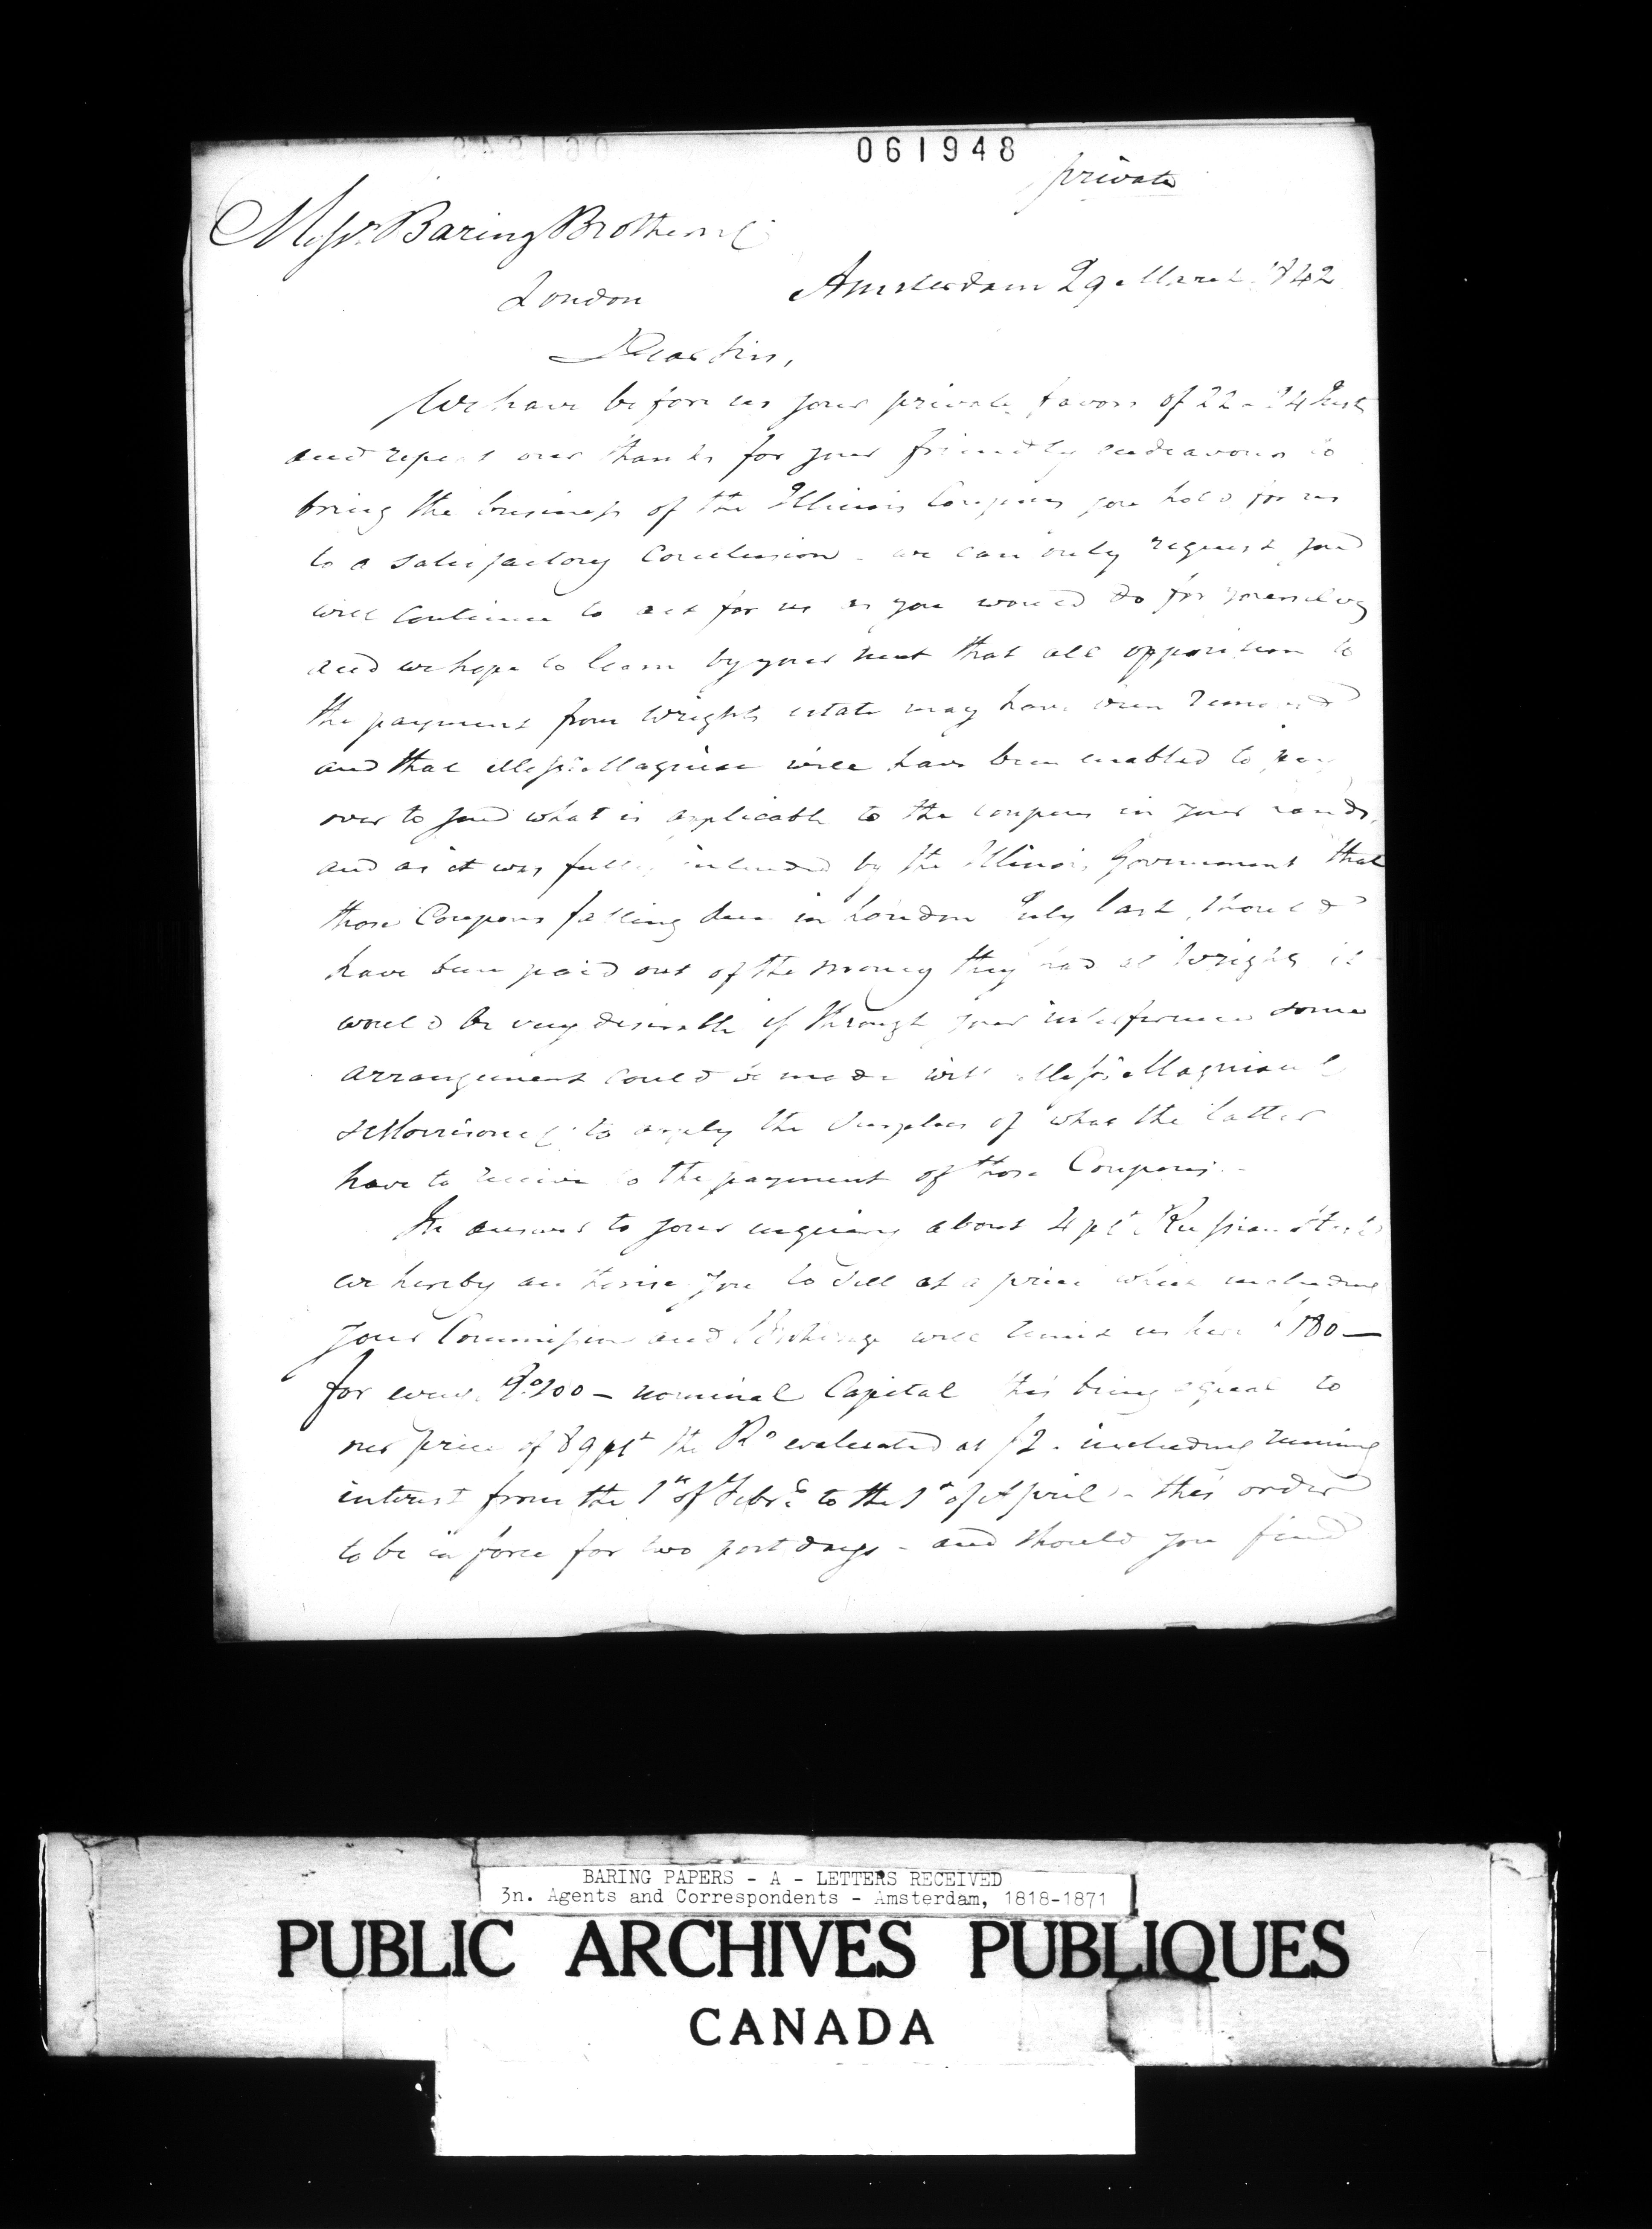 061948
private
Messrs Baring Brothers &C
London Amsterdam 29 March 1842
Dear Sirs,
We have before us your private favors of 22 - 24 Inst
and repeat our thanks for your friendly endeavours to
bring the business of the Illinois Coupons you hold for us
to a satisfactory Conclusion - we can only request you
will continue to act for us as you would do for yourselves
and we hope to learn by your next that all opposition to
the payment from Wrights estate may have been removed
and that Messrs Magniac will have been enabled to pay
over to you what is applicable to the coupons in your hands,
and as it was fully intended by the Illinois Government that
those Coupons falling due in London July last, should
have been paid out of the money they had at Wrights it
would be very desirable if through your interference some
arrangement could be made with Messrs Magniac &
& Morrison &C to apply the Surplus of what the latter
have to receive to the payment of those Coupons. -
In answer to your enquiry about 4 pCt Russian Stock
we hereby authorise you to sell at a price which including
your Commission and will us here f 180 -
for every Ro 100 - nominal Capital this being equal to
our price of 89 pCt the Ro evaluated at f2 - including running
interest from the 1st of Febry to the 1st of April - this order
to be in force for two post days - and should you find
BARING PAPERS - A - LETTERS RECEIVED
3n. Agents and Correspondents - Amsterdam, 1818-1871
PUBLIC ARCHIVES PUBLIQUES
CANADA